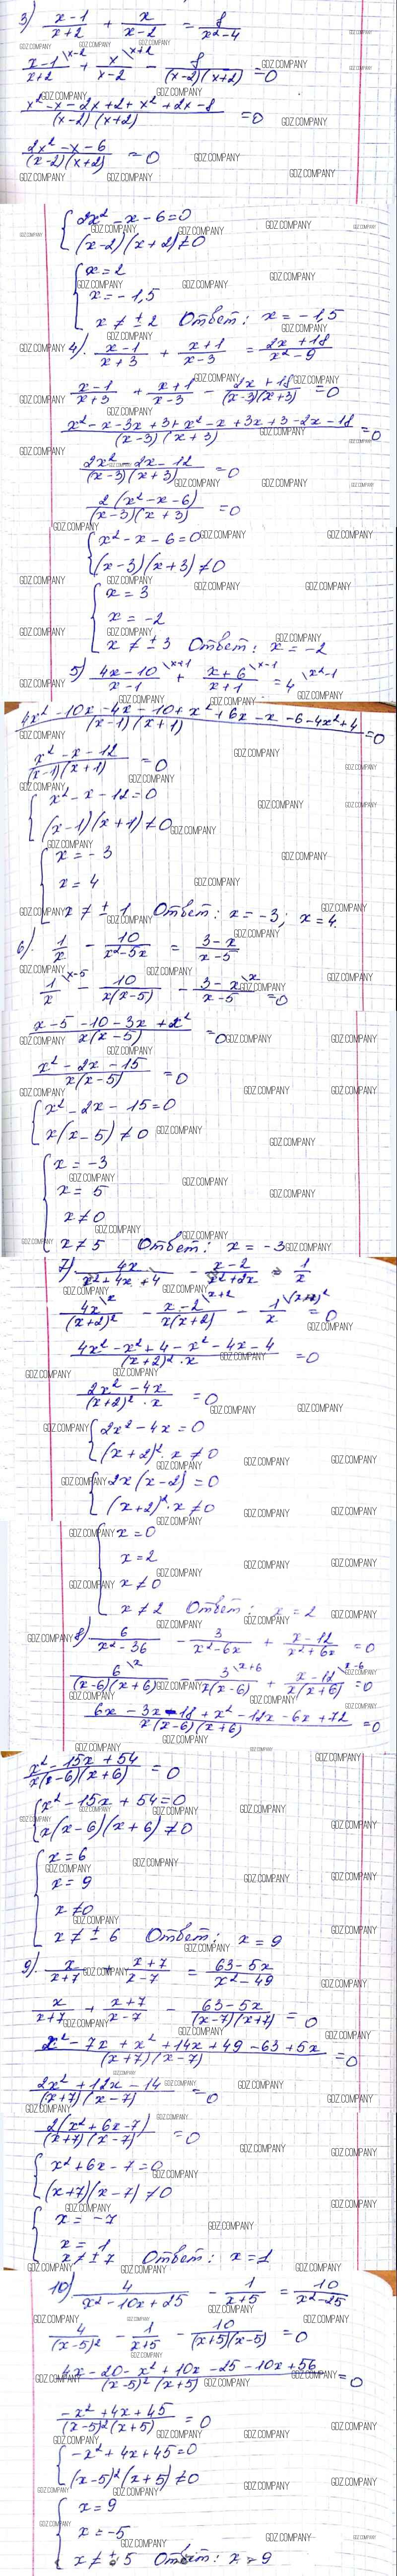 3) (x-1)/(x+2) + x/(x-2) = 8/(x²-4)
(x-1)/(x+2) \x-2 + x/(x-2) \x+2 - 8/((x-2)(x+2)) = 0
(x²-x-2x+2+x²+2x-8)/((x-2)(x+2)) = 0
(2x²-x-6)/((x-2)(x+2)) = 0
{ 2x²-x-6=0
(x-2)(x+2)≠0
{ x=2
x=-1,5
x≠±2 Ответ: x=-1,5
4). (x-1)/(x+3) + (x+1)/(x-3) = (2x+18)/(x²-9)
(x-1)/(x+3) + (x+1)/(x-3) - (2x+18)/((x-3)(x+3)) = 0
(x²-x-3x+3+x²+x+3x+3-2x-18)/((x-3)(x+3)) = 0
(2x²-2x-12)/((x-3)(x+3)) = 0
2(x²-x-6)/((x-3)(x+3)) = 0
{ x²-x-6=0
(x-3)(x+3)≠0
{ x=3
x=-2
x≠±3 Ответ: x=-2
5) (4x-10)/(x-1) \x+1 + (x+6)/(x+1) \x-1 = 4 \x²-1
(4x²-10x+4x-10+x²+6x-x-6-4x²+4)/((x-1)(x+1)) = 0
(x²-x-12)/((x-1)(x+1)) = 0
{ x²-x-12=0
(x-1)(x+1)≠0
{ x=-3
x=4
x≠±1 Ответ: x=-3; x=4.
6). 1/x - 10/(x²-5x) = (3-x)/(x-5)
1/x \x-5 - 10/(x(x-5)) - (3-x)/(x-5) \x = 0
(x-5-10-3x+x²)/(x(x-5)) = 0
(x²-2x-15)/(x(x-5)) = 0
{ x²-2x-15=0
x(x-5)≠0
{ x=-3
x=5
x≠0
x≠5 Ответ: x=-3
7) 4x/(x²+4x+4) - (x-2)/(x²+2x) = 1/x
4x/(x+2)² \x - (x-2)/(x(x+2)) \x+2 - 1/x \(x+2)² = 0
(4x²-x²+4-x²-4x-4)/((x+2)²·x) = 0
(2x²-4x)/((x+2)²·x) = 0
{ 2x²-4x=0
(x+2)²·x≠0
{ 2x(x-2)=0
(x+2)²·x≠0
{ x=0
x=2
x≠0
x≠2 Ответ: x=2
8) 6/(x²-36) - 3/(x²-6x) + (x-12)/(x²+6x) = 0
6/((x-6)(x+6)) \x - 3/(x(x-6)) \x+6 + (x-12)/(x(x+6)) \x-6 = 0
(6x-3x-18+x²-12x-6x+72)/(x(x-6)(x+6)) = 0
(x²-15x+54)/(x(x-6)(x+6)) = 0
{ x²-15x+54=0
x(x-6)(x+6)≠0
{ x=6
x=9
x≠0
x≠±6 Ответ: x=9
9). x/(x+7) + (x+7)/(x-7) = (63-5x)/(x²-49)
x/(x+7) + (x+7)/(x-7) - (63-5x)/((x-7)(x+7)) = 0
(x²-7x+x²+14x+49-63+5x)/((x+7)(x-7)) = 0
(2x²+12x-14)/((x+7)(x-7)) = 0
2(x²+6x-7)/((x+7)(x-7)) = 0
{ x²+6x-7=0
(x+7)(x-7)≠0
{ x=-7
x=1
x≠±7 Ответ: x=1
10) 4/(x²-10x+25) - 1/(x+5) = 10/(x²-25)
4/(x-5)² - 1/(x+5) - 10/((x+5)(x-5)) = 0
(4x-20-x²+10x-25-10x+56)/((x-5)²(x+5)) = 0
(-x²+4x+45)/((x-5)²(x+5)) = 0
{ -x²+4x+45=0
(x-5)²(x+5)≠0
{ x=9
x=-5
x≠±5 Ответ: x=9
GDZ.COMPANY